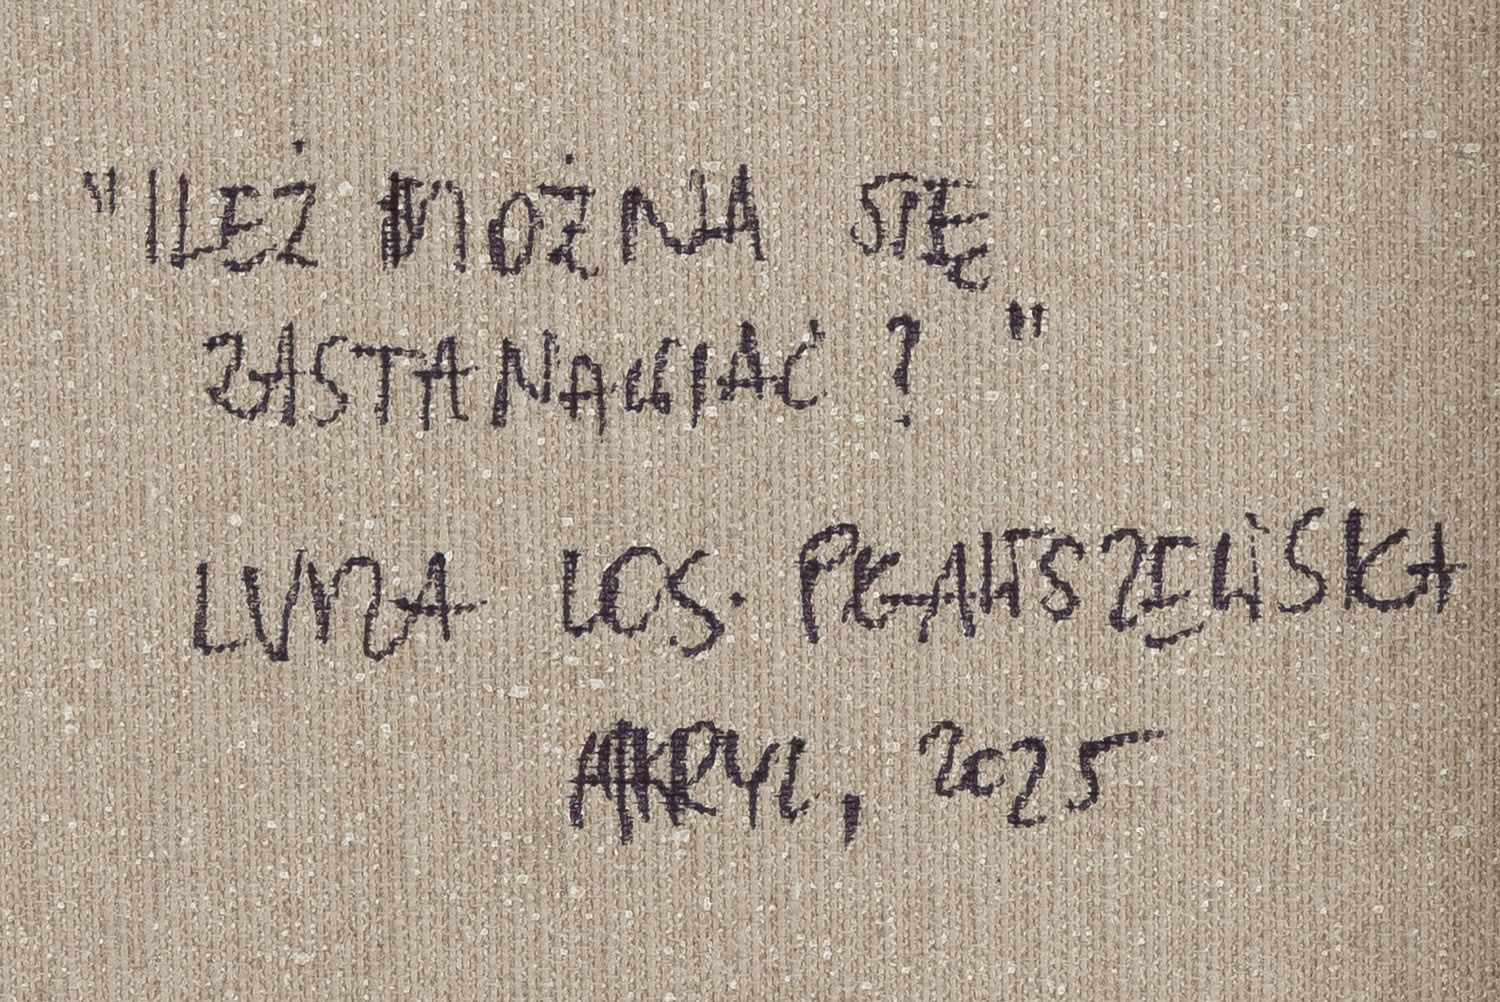 "ILEŻ MOŻNA SIĘ
ZASTANAWIAĆ? "
LUIZA LOS. PŁAWSZEWSKA
AKRYL, 2025